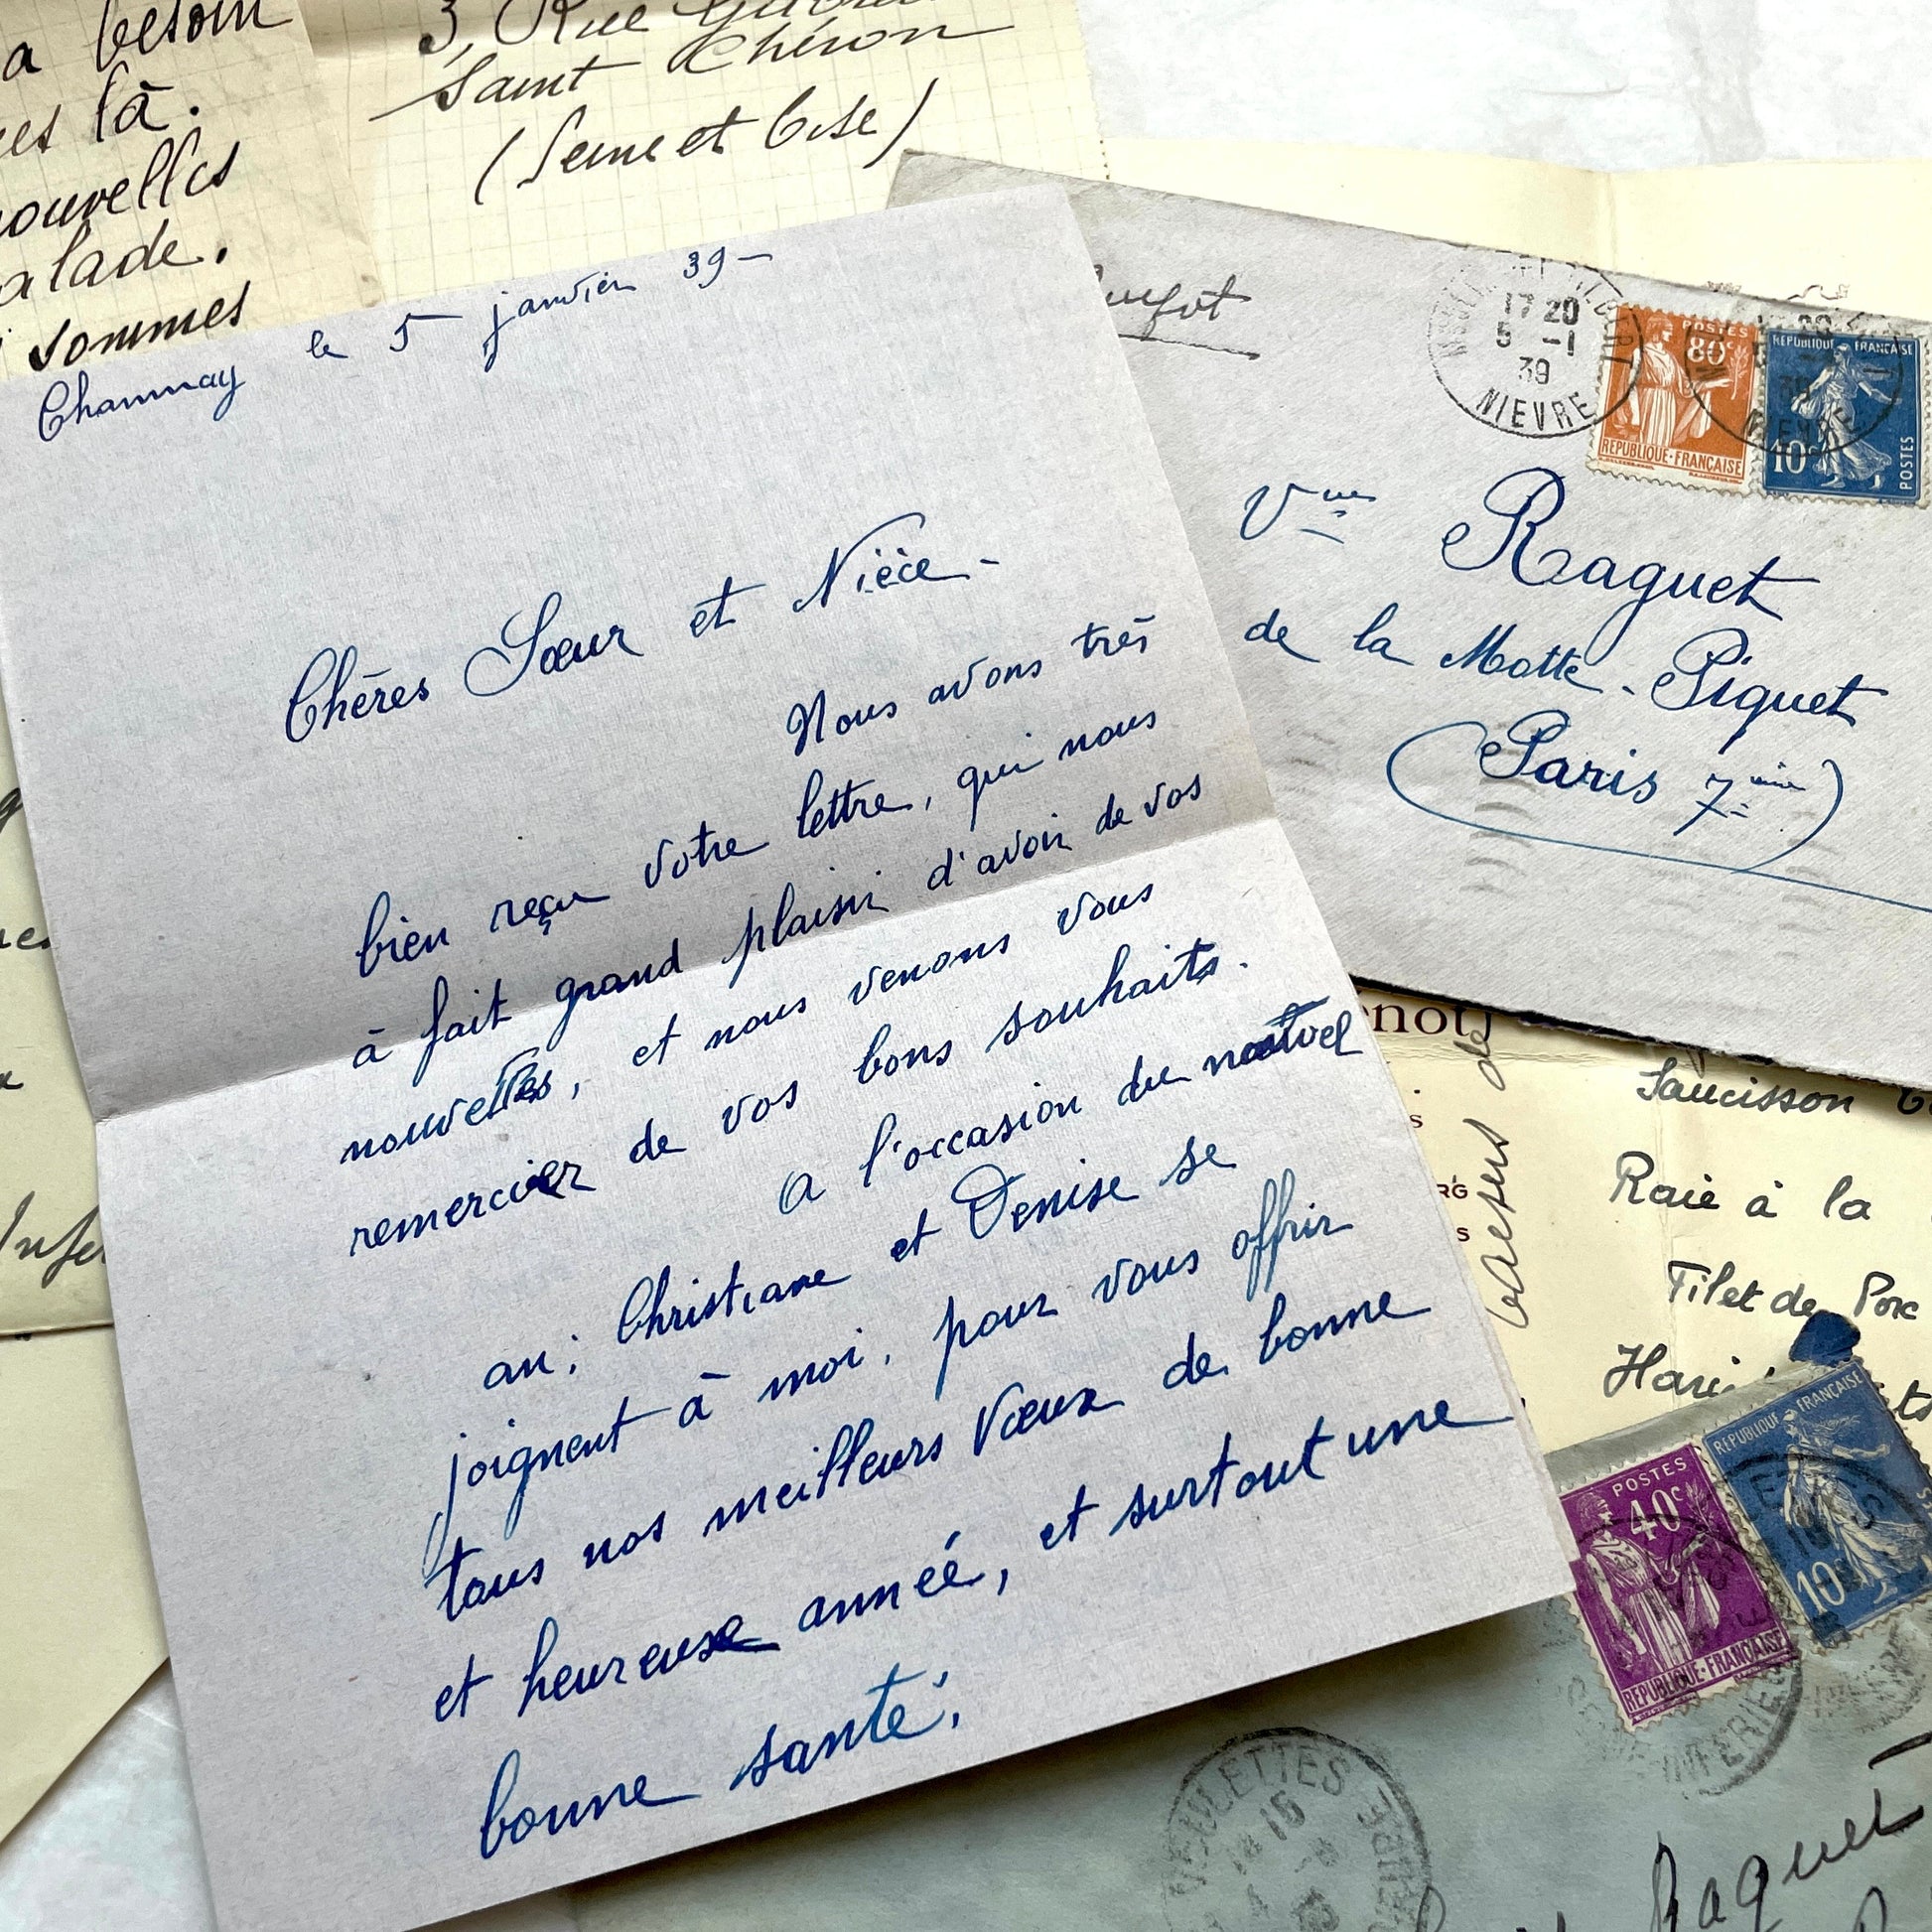 a besoin
là.
nouvelles
sommes
3, Rue
Saint Chéron
(Seine et Oise)
le 5 janvier 39-
Chères Sœur et Nièce -
Nous avons très
bien reçu votre lettre, qui nous
à fait grand plaisir d'avoir de vos
nouvelles, et nous venons vous
remercier de vos bons souhaits.
A l'occasion du nouvel
an; Christiane et Denise se
joignent à moi, pour vous offrir
tous nos meilleurs vœux de bonne
et heureuse année, et surtout une
bonne santé;
17 20
5 -1
39
NIEVRE
POSTES
80c
REPUBLIQUE·FRANÇAISE
REPUBLIQUE FRANÇAISE
10c
POSTES
Vme Raquet
de la Motte-Piquet
(Paris 7ème)
Saucisson
Raie à la
Filet de Porc
POSTES
40c
REPUBLIQUE·FRANÇAISE
REPUBLIQUE FRANÇAISE
10c
INFERIEURE
Raquet